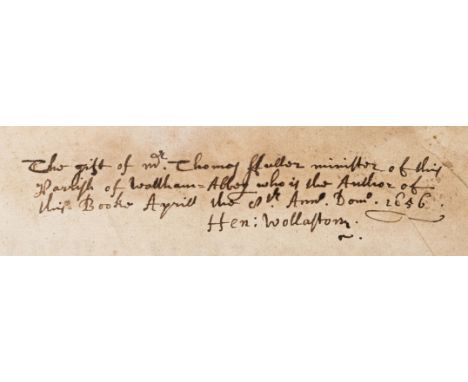 The gift of mr. Thomas ffuller minister of this
Parish of Waltham=Abbey who is the Author of
this Booke Aprill the 8th. Anno. Domo. 1656.
Hen: Wollaston.